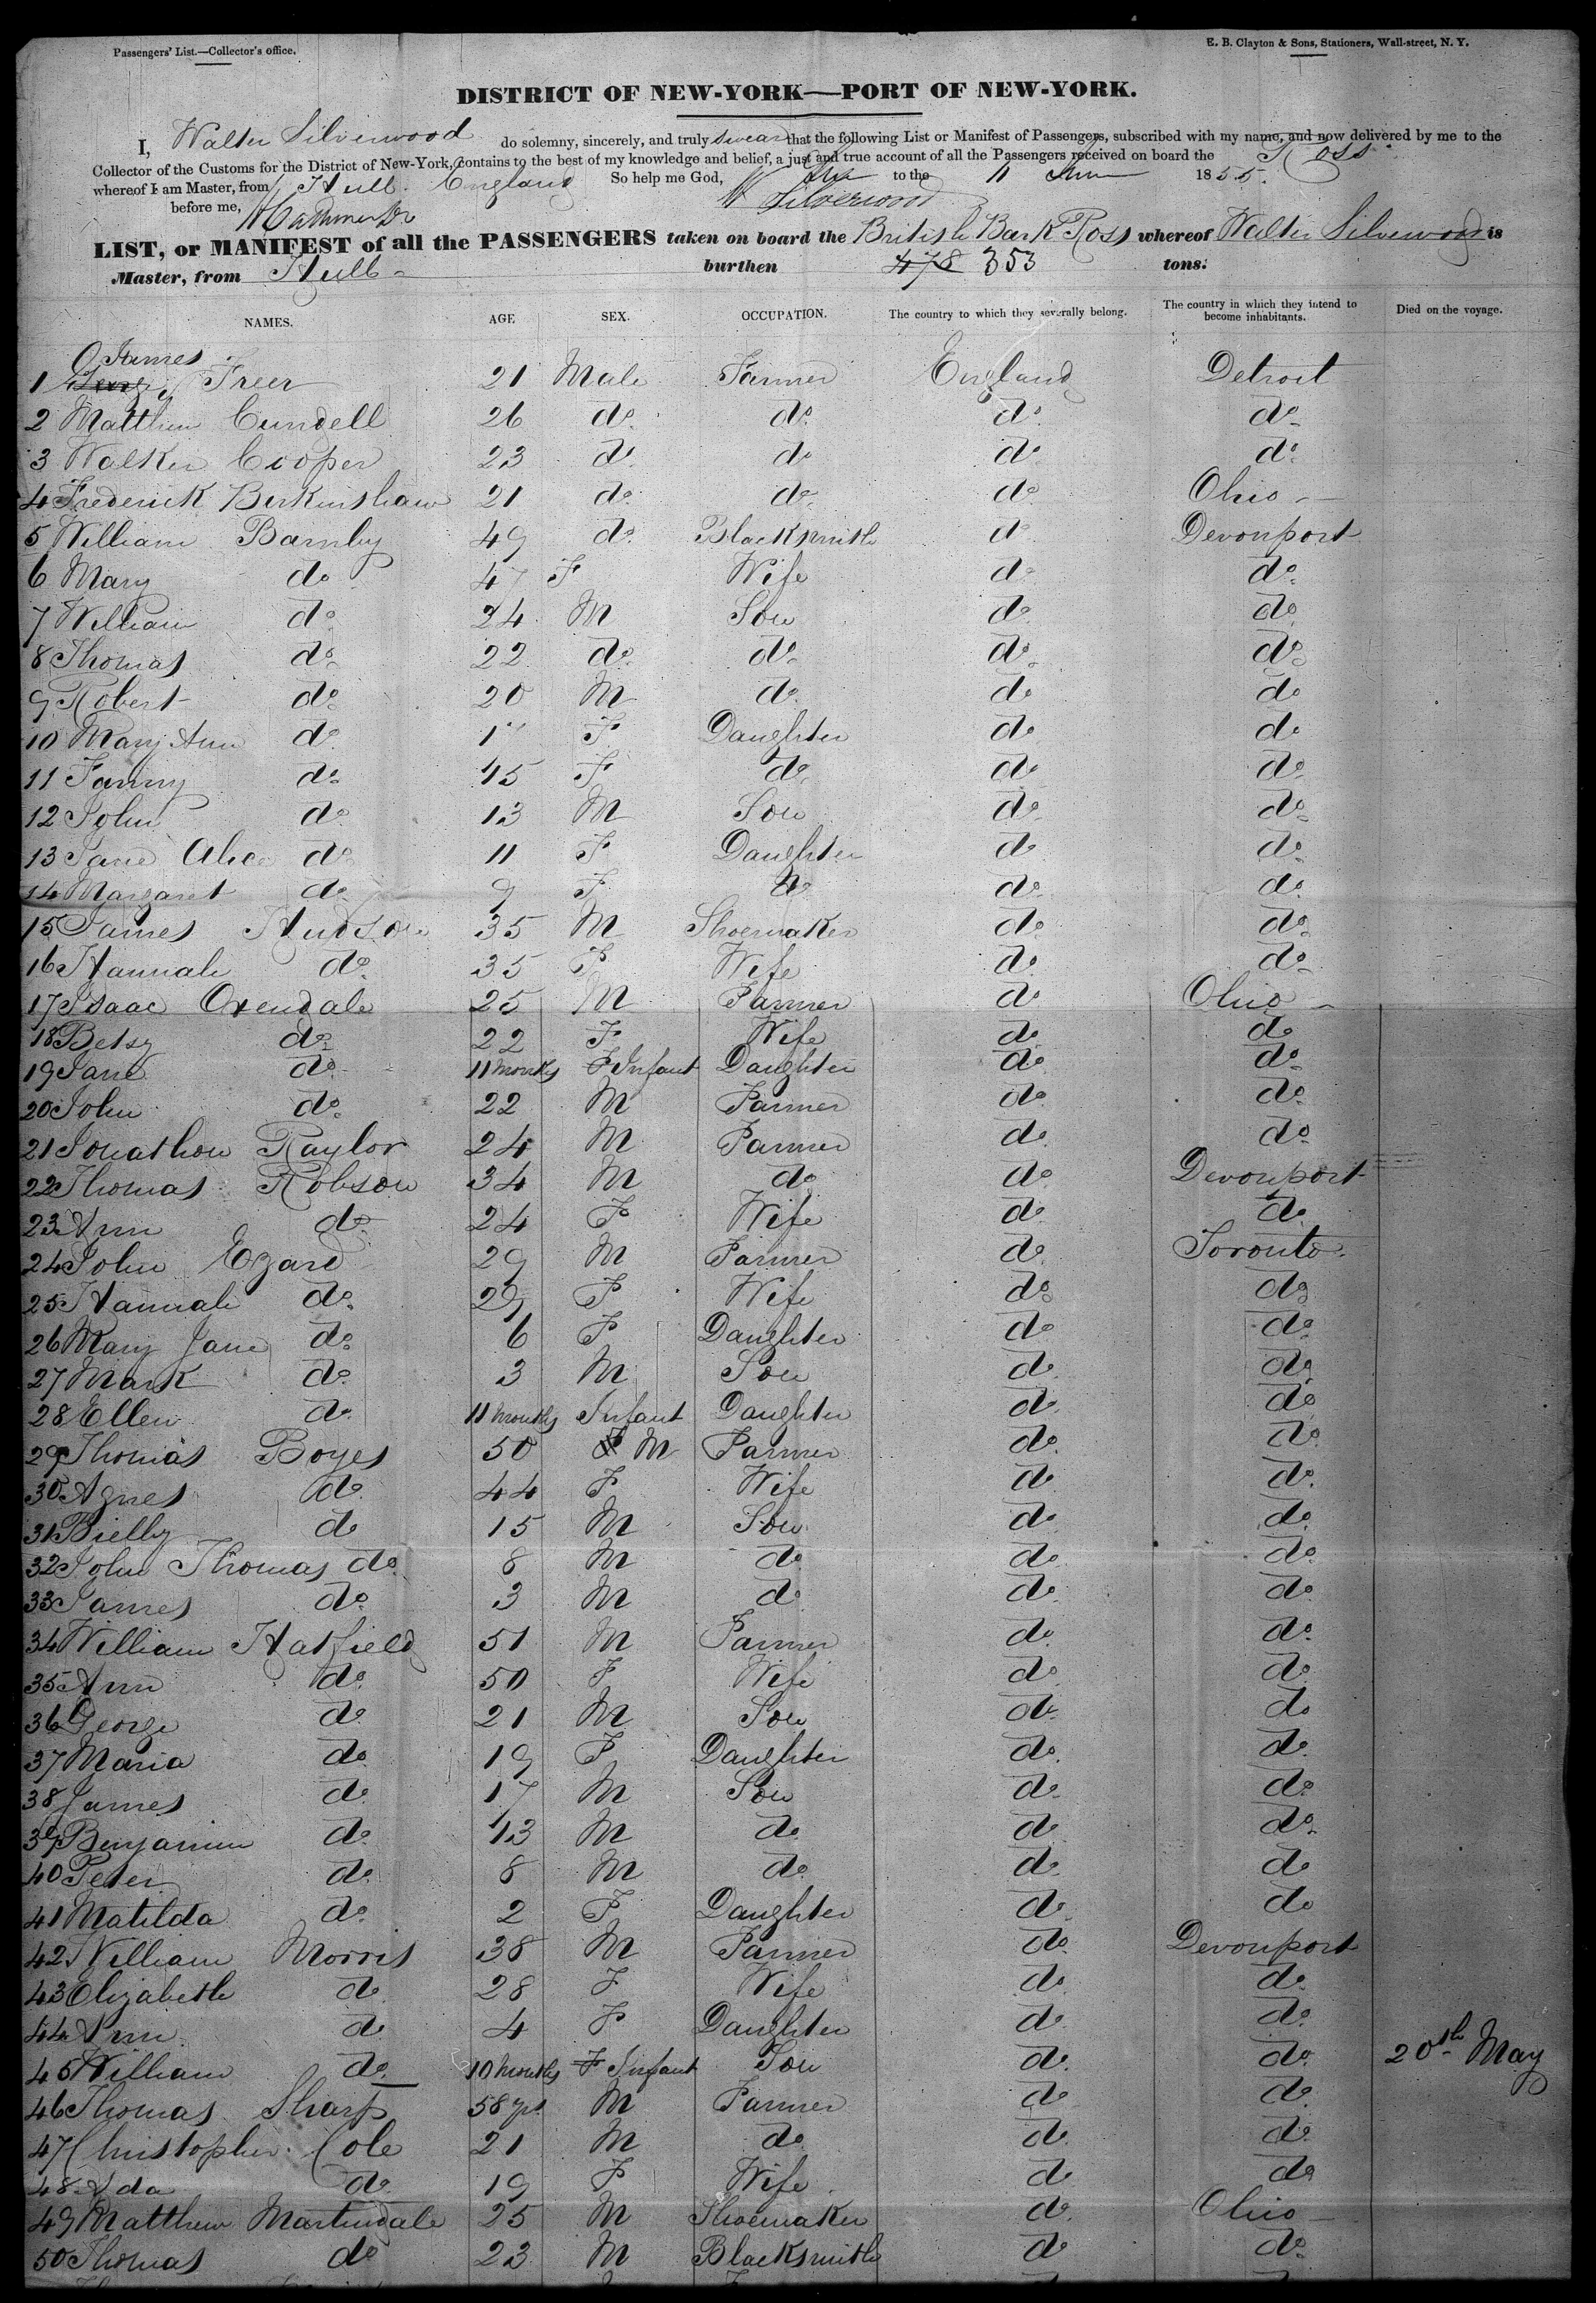 Passengers' List.—Collector's office.
E. B. Clayton & Sons, Stationers, Wall-street, N. Y.
DISTRICT OF NEW-YORK—PORT OF NEW-YORK.
I, Walter Silverwood do solemny, sincerely, and truly swear that the following List or Manifest of Passengers, subscribed with my name, and now delivered by me to the
Collector of the Customs for the District of New-York, contains to the best of my knowledge and belief, a just and true account of all the Passengers received on board the Ross
whereof I am Master, from Hull England So help me God, to the 11 1855.
before me, W Silverwood
LIST, or MANIFEST of all the PASSENGERS taken on board the British Bark Ross whereof Walter Silverwood is
Master, from Hull burthen 478 353 tons.
NAMES. AGE SEX. OCCUPATION. The country to which they severally belong. The country in which they intend to become inhabitants. Died on the voyage.
James
1 Freer 21 Male Farmer England Detroit
2 Matthew Cundell 26 do do do do
3 Walker Cooper 23 do do do do
4 Frederick Birkinshaw 21 do do do Ohio
5 William Barnby 49 do Blacksmith do Devonport
6 Mary do 47 F Wife do do
7 William do 24 M Son do do
8 Thomas do 22 do do do do
9 Robert do 20 M do do do
10 Mary Ann do F Daughter do do
11 Fanny do 15 F do do do
12 John do 13 M Son do do
13 Jane Alice do 11 F Daughter do do
14 Margaret do 9 F do do do
15 James Hudson 35 M Shoemaker do do
16 Hannah do 35 F Wife do do
17 Isaac Oxendale 25 M Farmer do Ohio
18 Betsy do 22 F Wife do do
19 Jane do 11 months F Infant Daughter do do
20 John do 22 M Farmer do do
21 Jonathon Raylor 24 M Farmer do do
22 Thomas Robson 34 M do do Devonport
23 Ann do 24 F Wife do do
24 John Ezard 29 M Farmer do Toronto
25 Hannah do 29 F Wife do do
26 Mary Jane do 6 F Daughter do do
27 Mark do 3 M Son do do
28 Ellen do 11 months Infant Daughter do do
29 Thomas Boyes 50 F M Farmer do do
30 Agnes do 44 F Wife do do
31 Bielby do 15 M Son do do
32 John Thomas do 8 M do do do
33 James do 3 M do do do
34 William Hatfield 51 M Farmer do do
35 Ann do 50 F Wife do do
36 George do 21 M Son do do
37 Maria do 19 F Daughter do do
38 James do 17 M Son do do
39 Benjamin do 13 M do do do
40 Peter do 8 M do do do
41 Matilda do 2 F Daughter do do
42 William Morris 38 M Farmer do Devonport
43 Elizabeth do 28 F Wife do do
44 Ann do 4 F Daughter do do
45 William do 10 months F Infant Son do do 20th May
46 Thomas Sharp 58 yrs M Farmer do do
47 Christopher Cole 21 M do do do
48 Ada do 19 F Wife do do
49 Matthew Martindale 25 M Shoemaker do Ohio
50 Thomas do 23 M Blacksmith do do